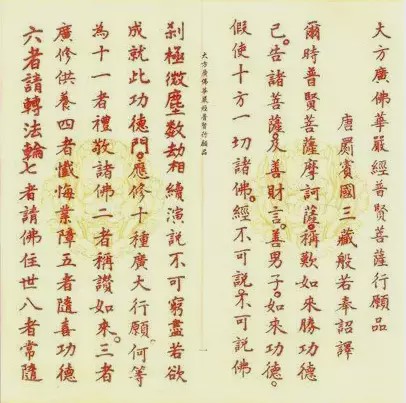 大方廣佛華嚴經普賢菩薩行願品
唐罽賓國三藏般若奉詔譯
爾時普賢菩薩摩訶薩。稱歎如來勝功德
已。告諸菩薩。及善財言。善男子。如來功德。
假使十方一切諸佛。經不可說。不可說佛
大方廣佛華嚴經普賢行願品
一
剎極微塵數劫相續演說不可窮盡若欲
成就此功德門。應修十種廣大行願。何等
為十一者禮敬諸佛二者稱讚如來。三者
廣修供養四者懺悔業障五者隨喜功德
六者請轉法輪七者請佛住世八者常隨